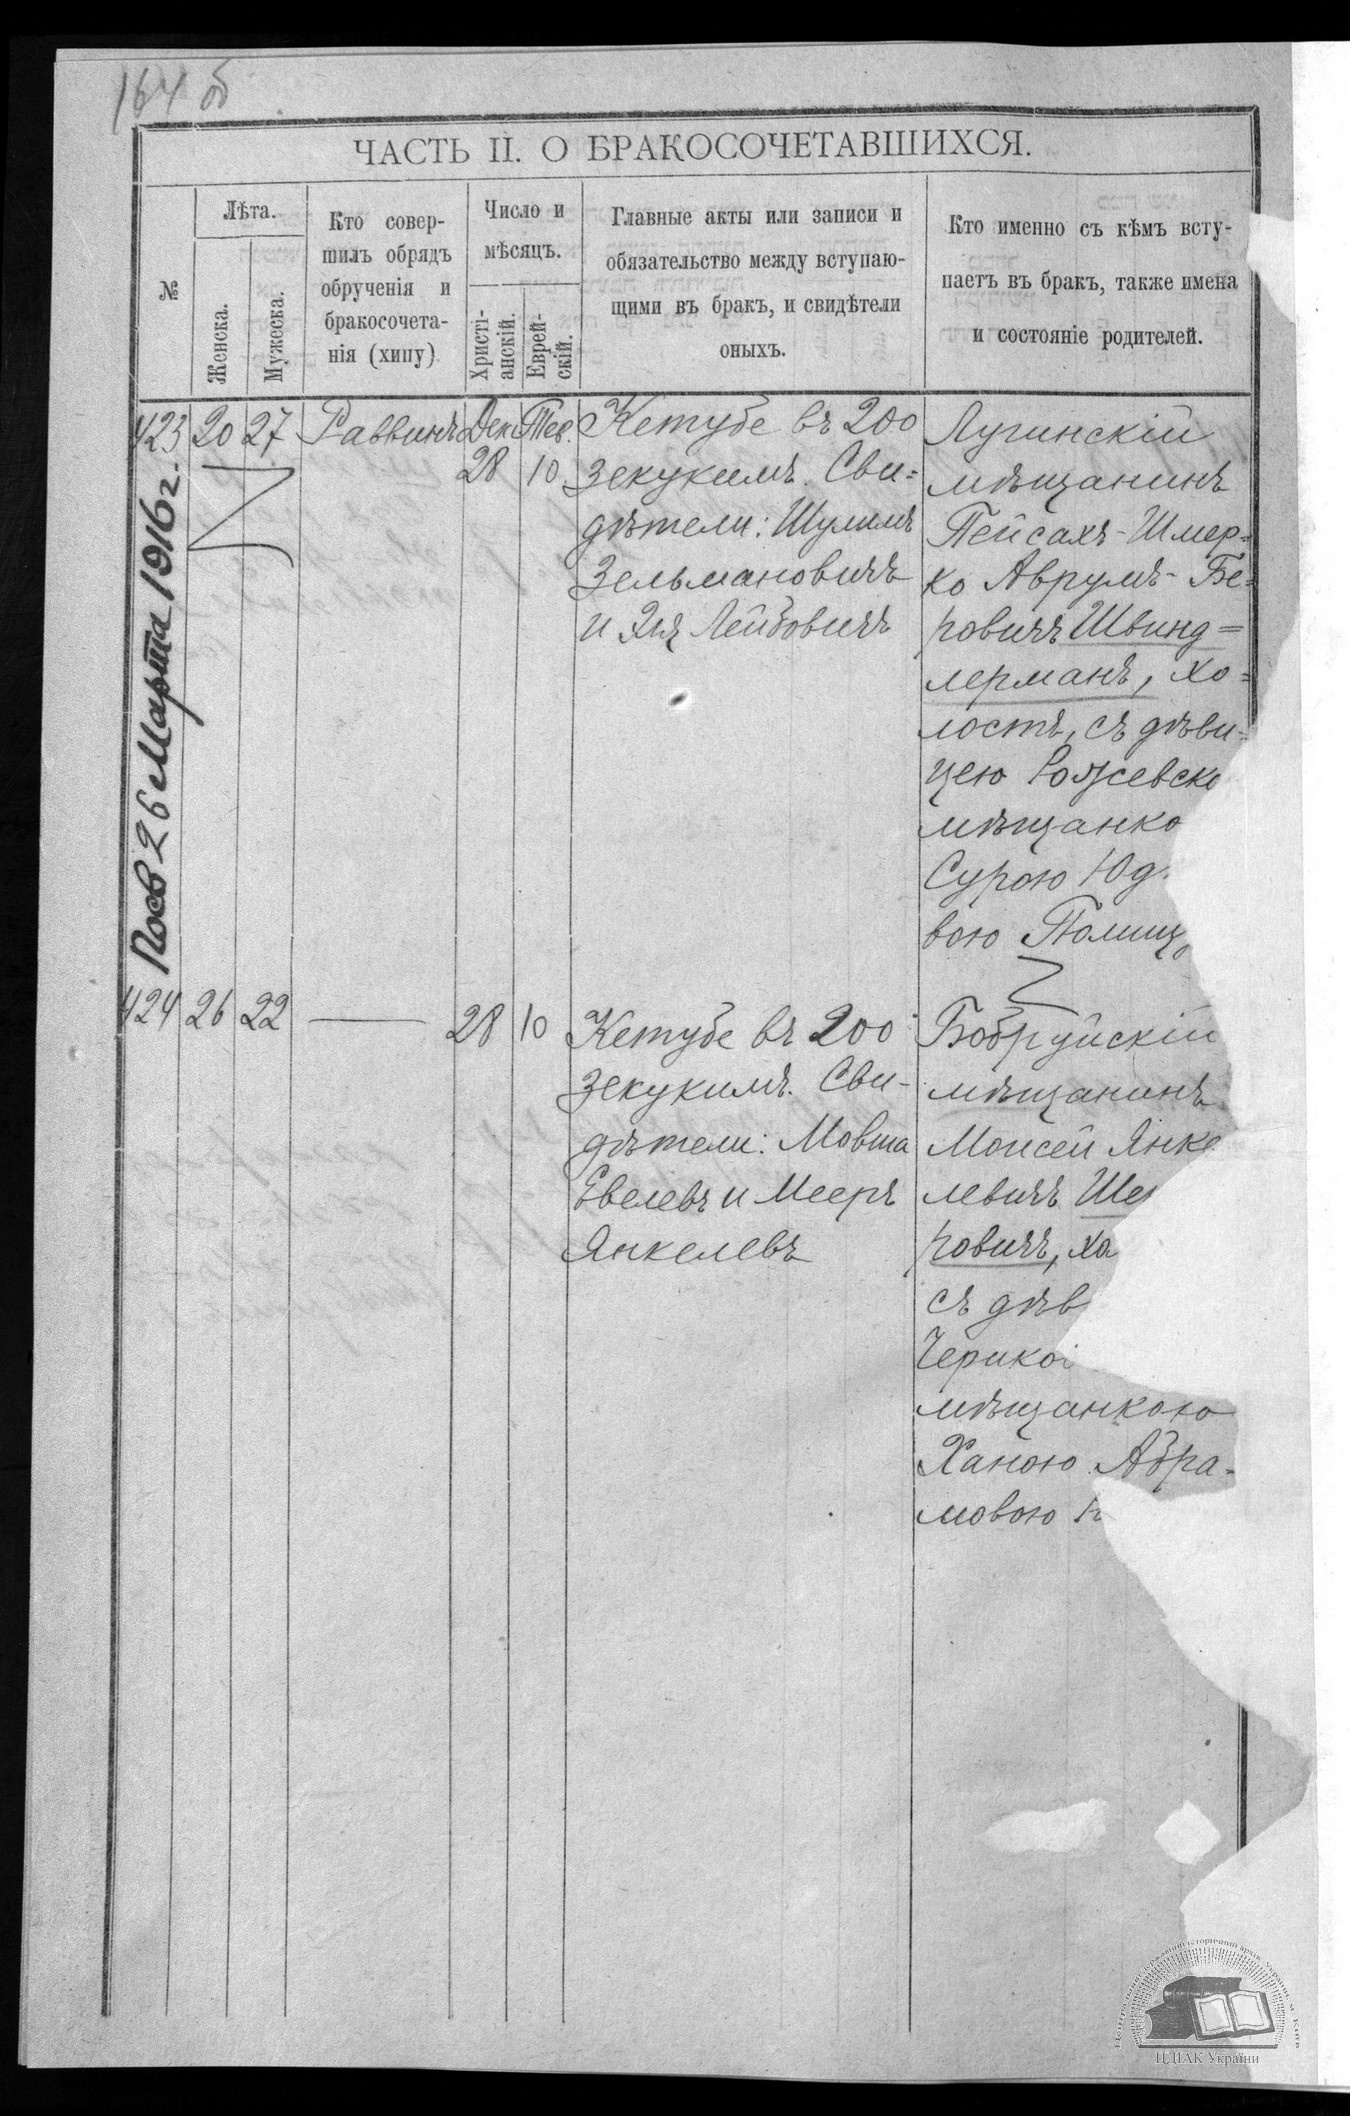 164 об
ЧАСТЬ II. О БРАКОСОЧЕТАВШИХСЯ.
№
Лѣта.
Женска.
Мужеска.
Кто совер-
шилъ обрядъ
обрученія и
бракосочета-
нія (хипу)
Число и
мѣсяцъ.
Христі-
анскій.
Еврей-
скій.
Главные акты или записи и
обязательство между вступаю-
щими въ бракъ, и свидѣтели
оныхъ.
Кто именно съ кѣмъ всту-
паетъ въ бракъ, также имена
и состояніе родителей.
423 20 27 Раввинъ Дек. Тев.
28 10
Кетубе въ 200
зекукимъ. Сви=
дѣтели: Шулимъ
Зельмановичъ
и Эля Лейбовичъ
Лугинскій
мѣщанинъ
Пейсахъ-Шмер=
ко Аврумъ-Бе=
ровичъ Швинд=
лерманъ, хо=
лостъ, съ дѣви=
цею
мѣщанко
Сурою Юд
вою
26 Марта 1916 г.
424 26 22 — 28 10
Кетубе въ 200
зекукимъ. Сви-
дѣтели: Мовша
Евелевъ и Мееръ
Янкелевъ
Бобруйскій
мѣщанинъ
Моисей Янке
левичъ Ше
ровичъ, хо
съ дѣв
Черико
мѣщанкою
Ханою Абра-
мовою
ЦДІАК України